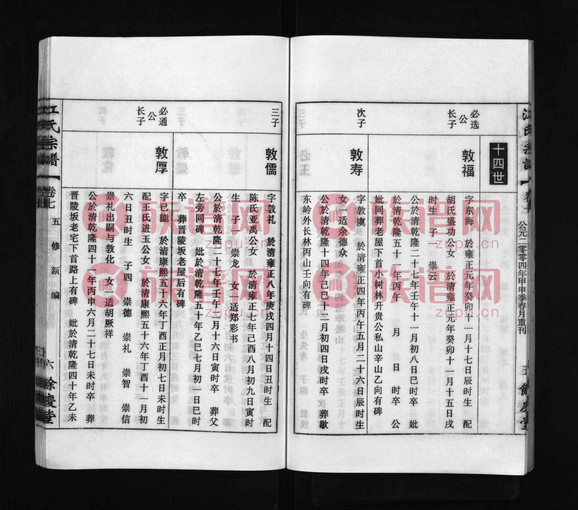 公元二零零四年甲申季春月重刊
五 馀庆堂
十四世
必选
公
长子
敦福
字东海 於雍正元年癸卯十一月十七日辰时生 配
胡氏盛功公女 於清雍正元年癸卯十一月十五日戌
时生 子一 崇云
公於清乾隆二十七年壬午十一月初八日巳时卒 妣
於清乾隆五十一年丙午 月 日 时卒 公
妣同葬老屋下首小树林与贵公私山辛山乙向有碑
次子
敦寿
字敦 於清雍正四年丙午五月二十六日辰时生
女一适余德众
公於清乾隆十四年己巳十二月初四日戌时卒 葬
东岭外长林丙山壬向有碑
三子
敦儒
字敦礼 於清雍正八年庚戌四月十四日丑时生 配
陈氏亚禹公女 於清雍正七年己酉八月初九日寅时
生 子一 崇龙 女一适郑彩书
公於清乾隆二十七年壬午二月十一日寅时卒 葬父
左旁同碑 妣於清乾隆五十年乙巳七月初一日巳时
卒 葬晋陵坂老屋后有碑
必通
公
长子
敦厚
字已能 於清康熙五十六年丁酉正月初七日未时生
配王氏进玉公女 於清康熙五十六年丁酉十一月初
六日丑时生 子四 崇德 崇礼 崇智 崇信
崇礼出嗣与敦化 女一适胡厥祥
公於清乾隆四十一年丙申六月二十七日未时卒 葬
晋陵坂老宅下首路上有碑 妣於清乾隆四十年乙未
江氏宗谱
卷七
五修新编
六 馀庆堂